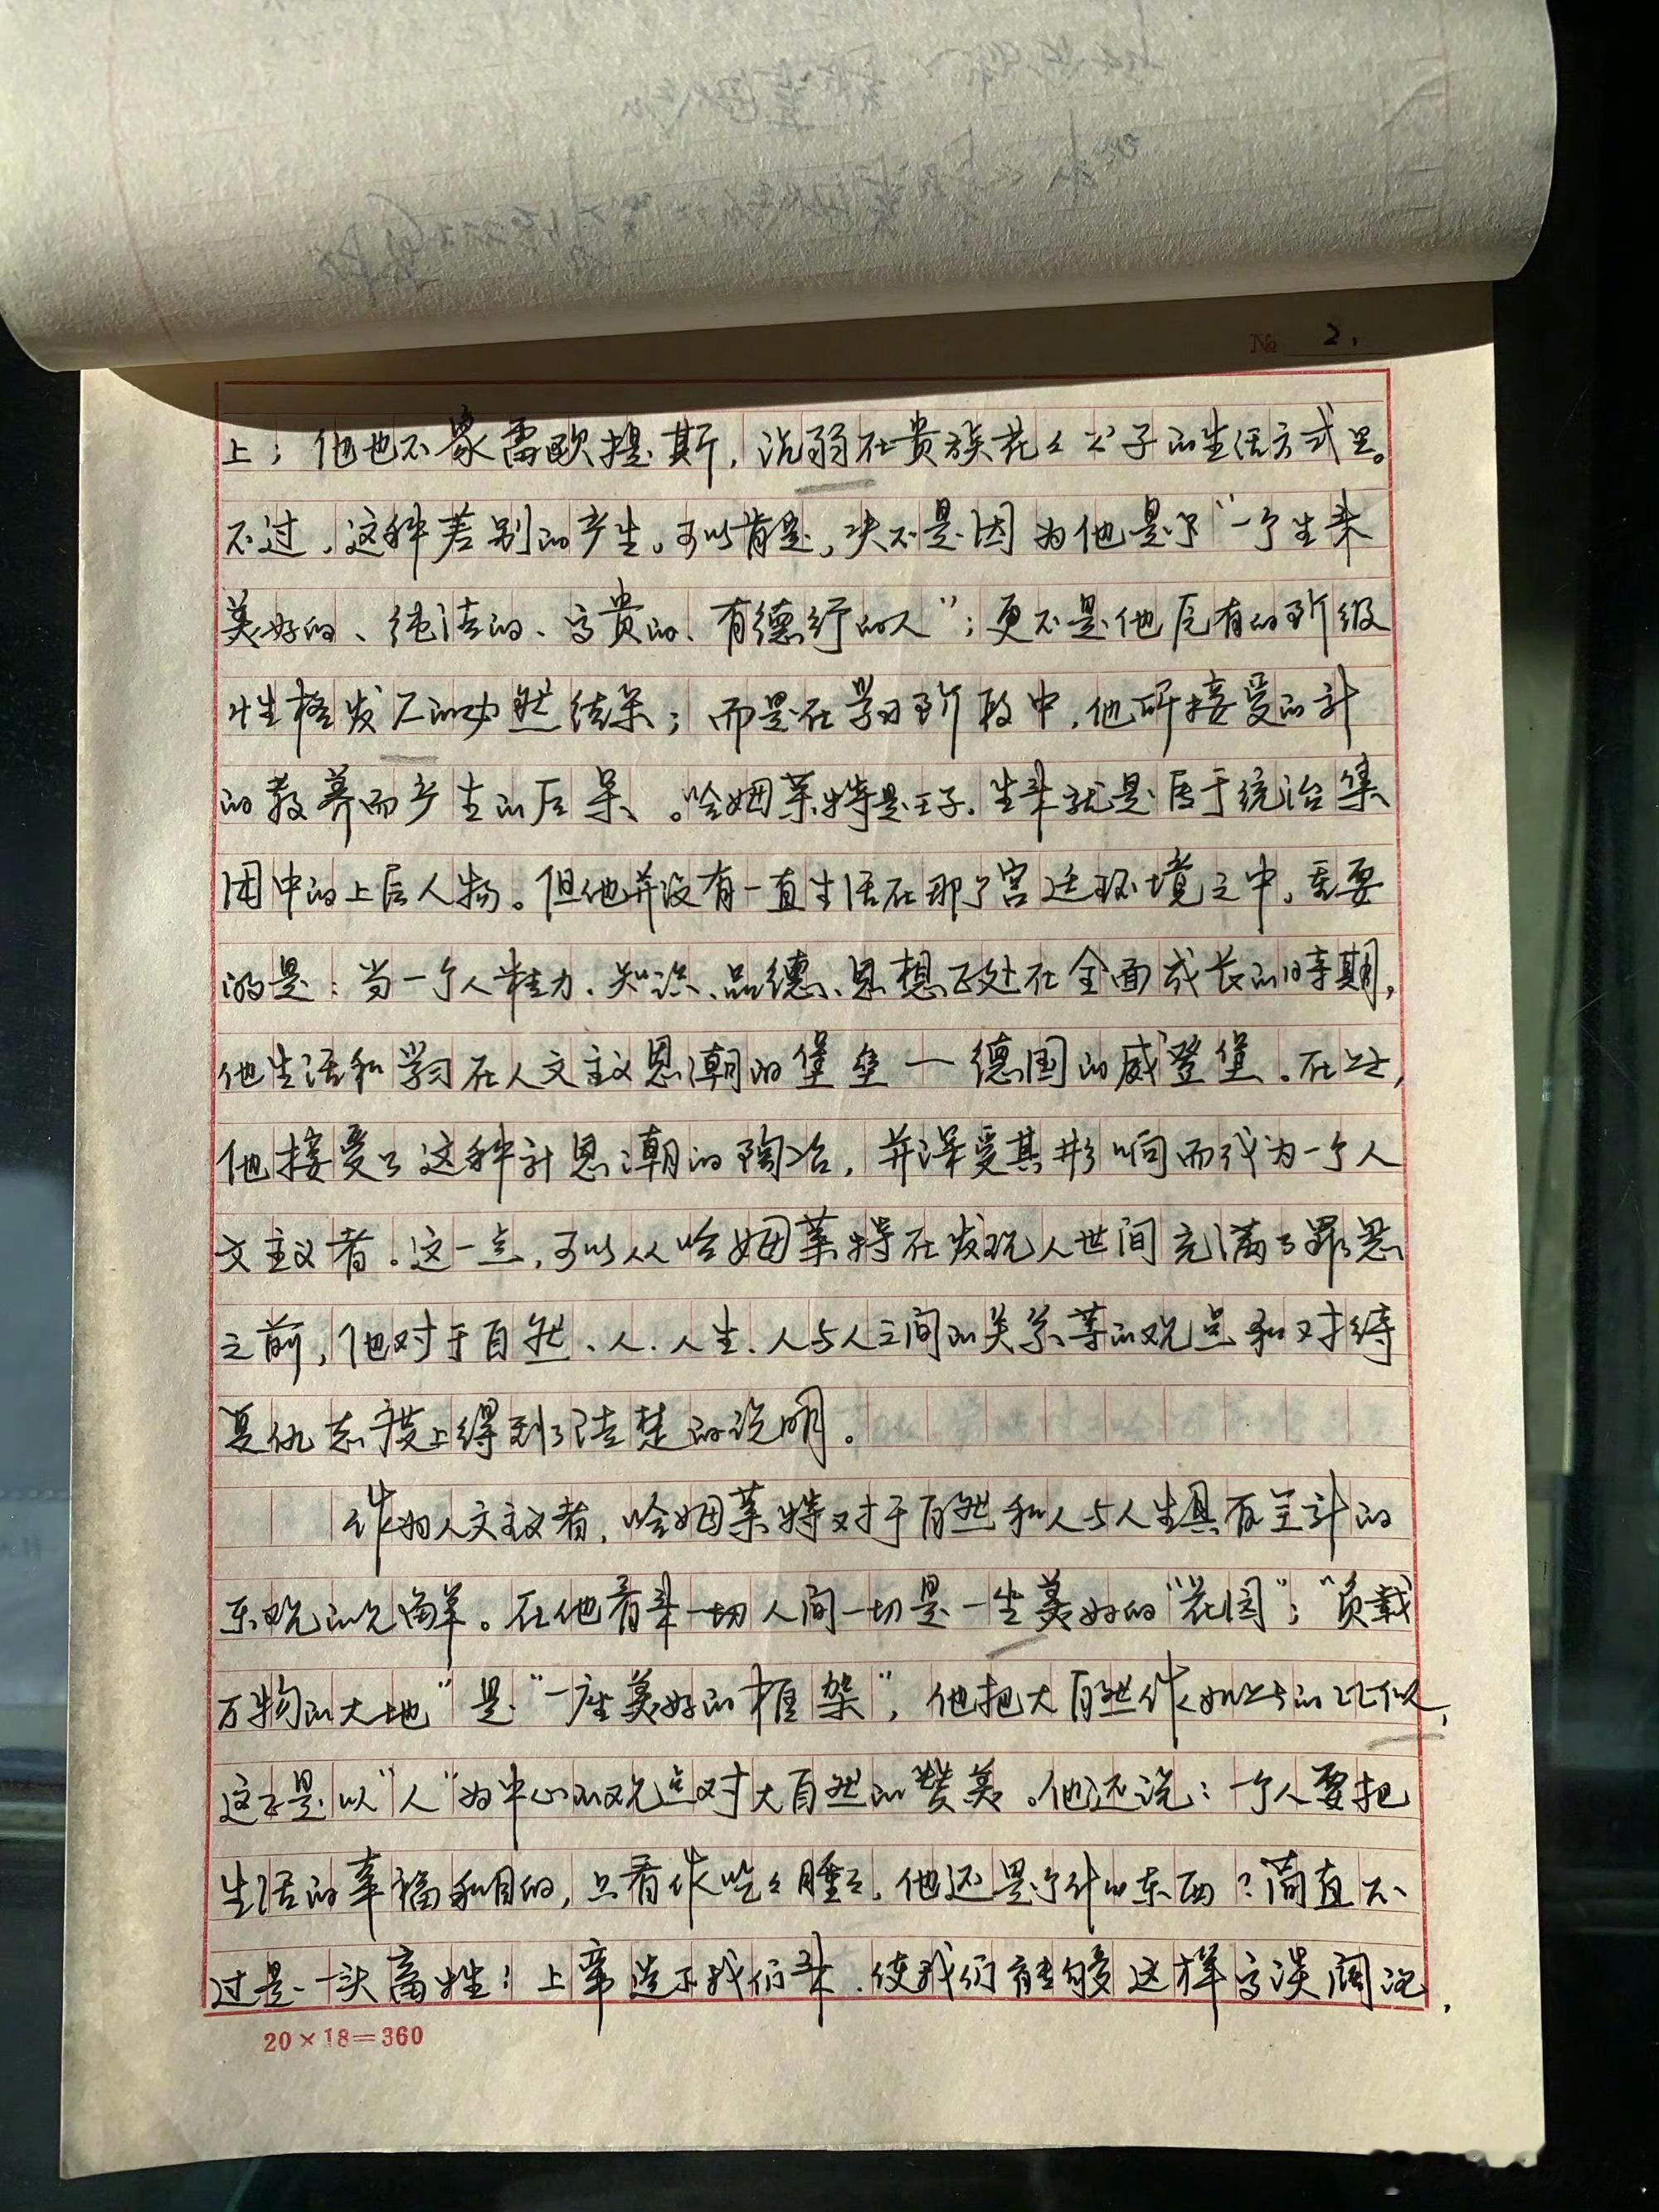 № 2.
上；他也不象雷欧提斯，沉弱在贵族花々公子的生活方式里。
不过，这种差别的产生。可以肯定，决不是因为他是个“一个生来
美好的、纯洁的、高贵的、有德行的人”；更不是他固有的阶级
性格发展的必然结果；而是在学习阶段中，他所接受的
的教养而产生的后果、。哈姆莱特是王子，生来就是居于统治集
团中的上层人物。但他并没有一直生活在那个宫廷环境之中，重要
的是：当一个人精力、知识、品德、思想正处在全面成长的时期，
他生活和学习在人文主义思潮的堡垒一德国的威登堡。在这，
他接受了这种新思潮的陶冶，并深受其影响而成为一个人
文主义者。这一点，可以从哈姆莱特在发现人世间充满了罪恶
之前，他对于自然、人、人生、人与人之间的关系等的观点和对待
复仇态度上得到了清楚的说明。
作为人文主义者，哈姆莱特对于自然和人与人生具有全新的
乐观的见解。在他看来一切人间一切是一坐美好的“花园”；“负载
万物的大地”是“一座美好的框架”，他把大自然作如此的比似，
这正是以“人”为中心的观点对大自然的赞美。他还说：一个人要把
生活的幸福和目的，只看作吃々睡々，他还是个什么东西？简直不
过是一头畜牲！上帝造下我们来，使我们能够这样高谈阔论，
20×18=360